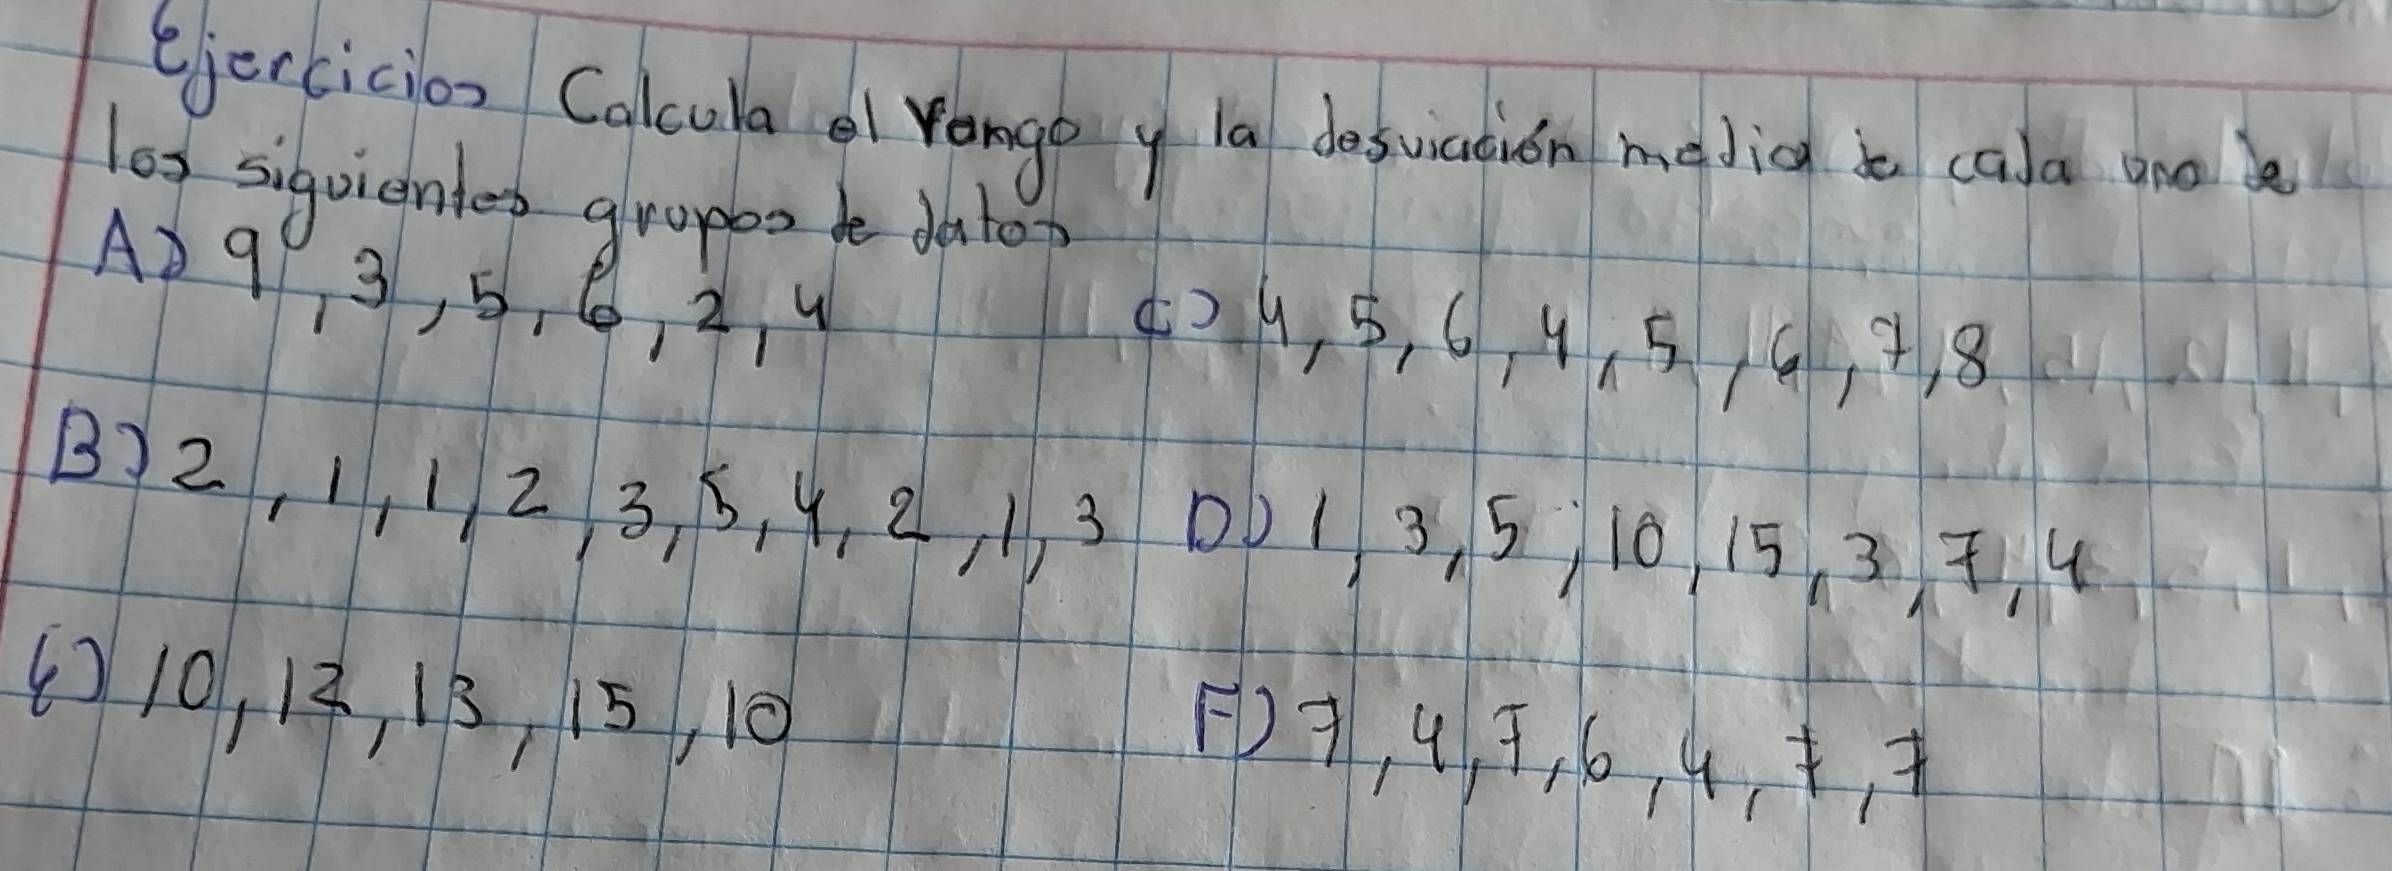 Ejercicios Calcula el rango y la desviación media de cada uno de
los siguientes grupos de datos
A) 9, 3, 5, 6, 2, 4
C) 4, 5, 6, 4, 5, 6, 7, 8
B) 2, 1, 1, 2, 3, 5, 4, 2, 1, 3
D) 1, 3, 5, 10, 15, 3, 7, 4
E) 10, 12, 13, 15, 10
F) 7, 4, 7, 6, 4, 7, 7